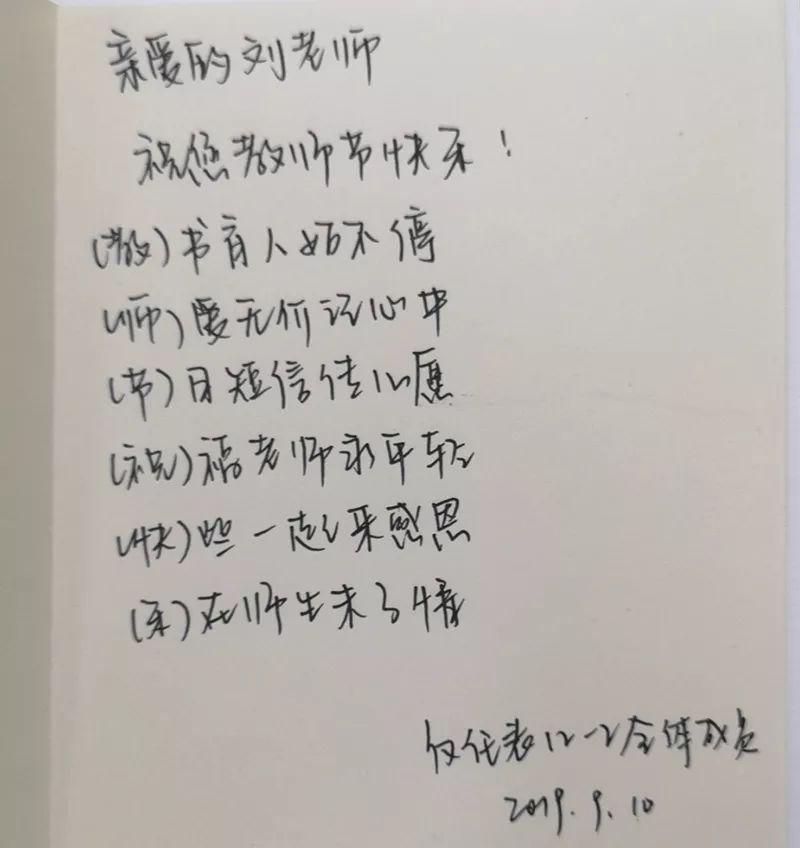 亲爱的刘老师
祝您教师节快乐！
(教)书育人如不停
(师)爱无价记心中
(节)日短信传心愿
(祝)福老师永年轻
(快)些一起来感恩
(乐)在师生未了情
仅代表12-2全体成员
2019.9.10